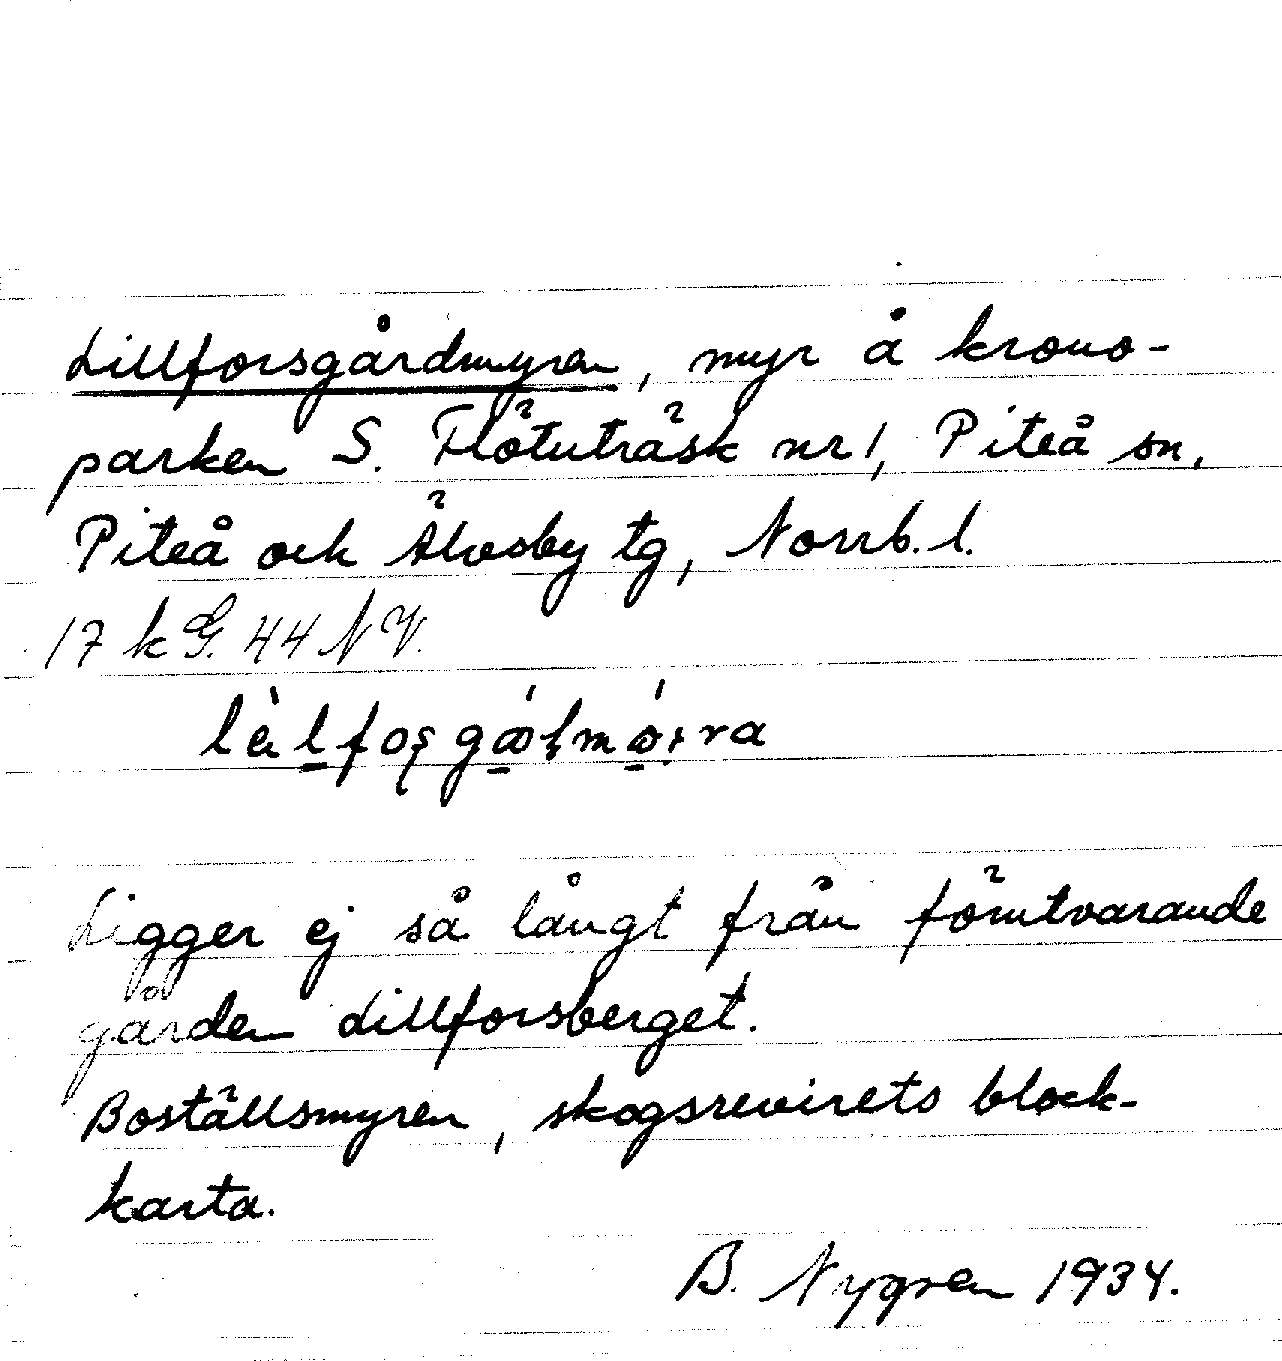 Lillforsgårdmyren, myr å krono-
parken S. Flötuträsk nr 1, Piteå sn,
Piteå och Älvsby tg, Norrb. l.
17 k G. 44 N V.
Ligger ej så långt från förutvarande
gården Lillforsberget.
Boställsmyren, skogsrevirets block-
karta.
B. Nygren 1934.